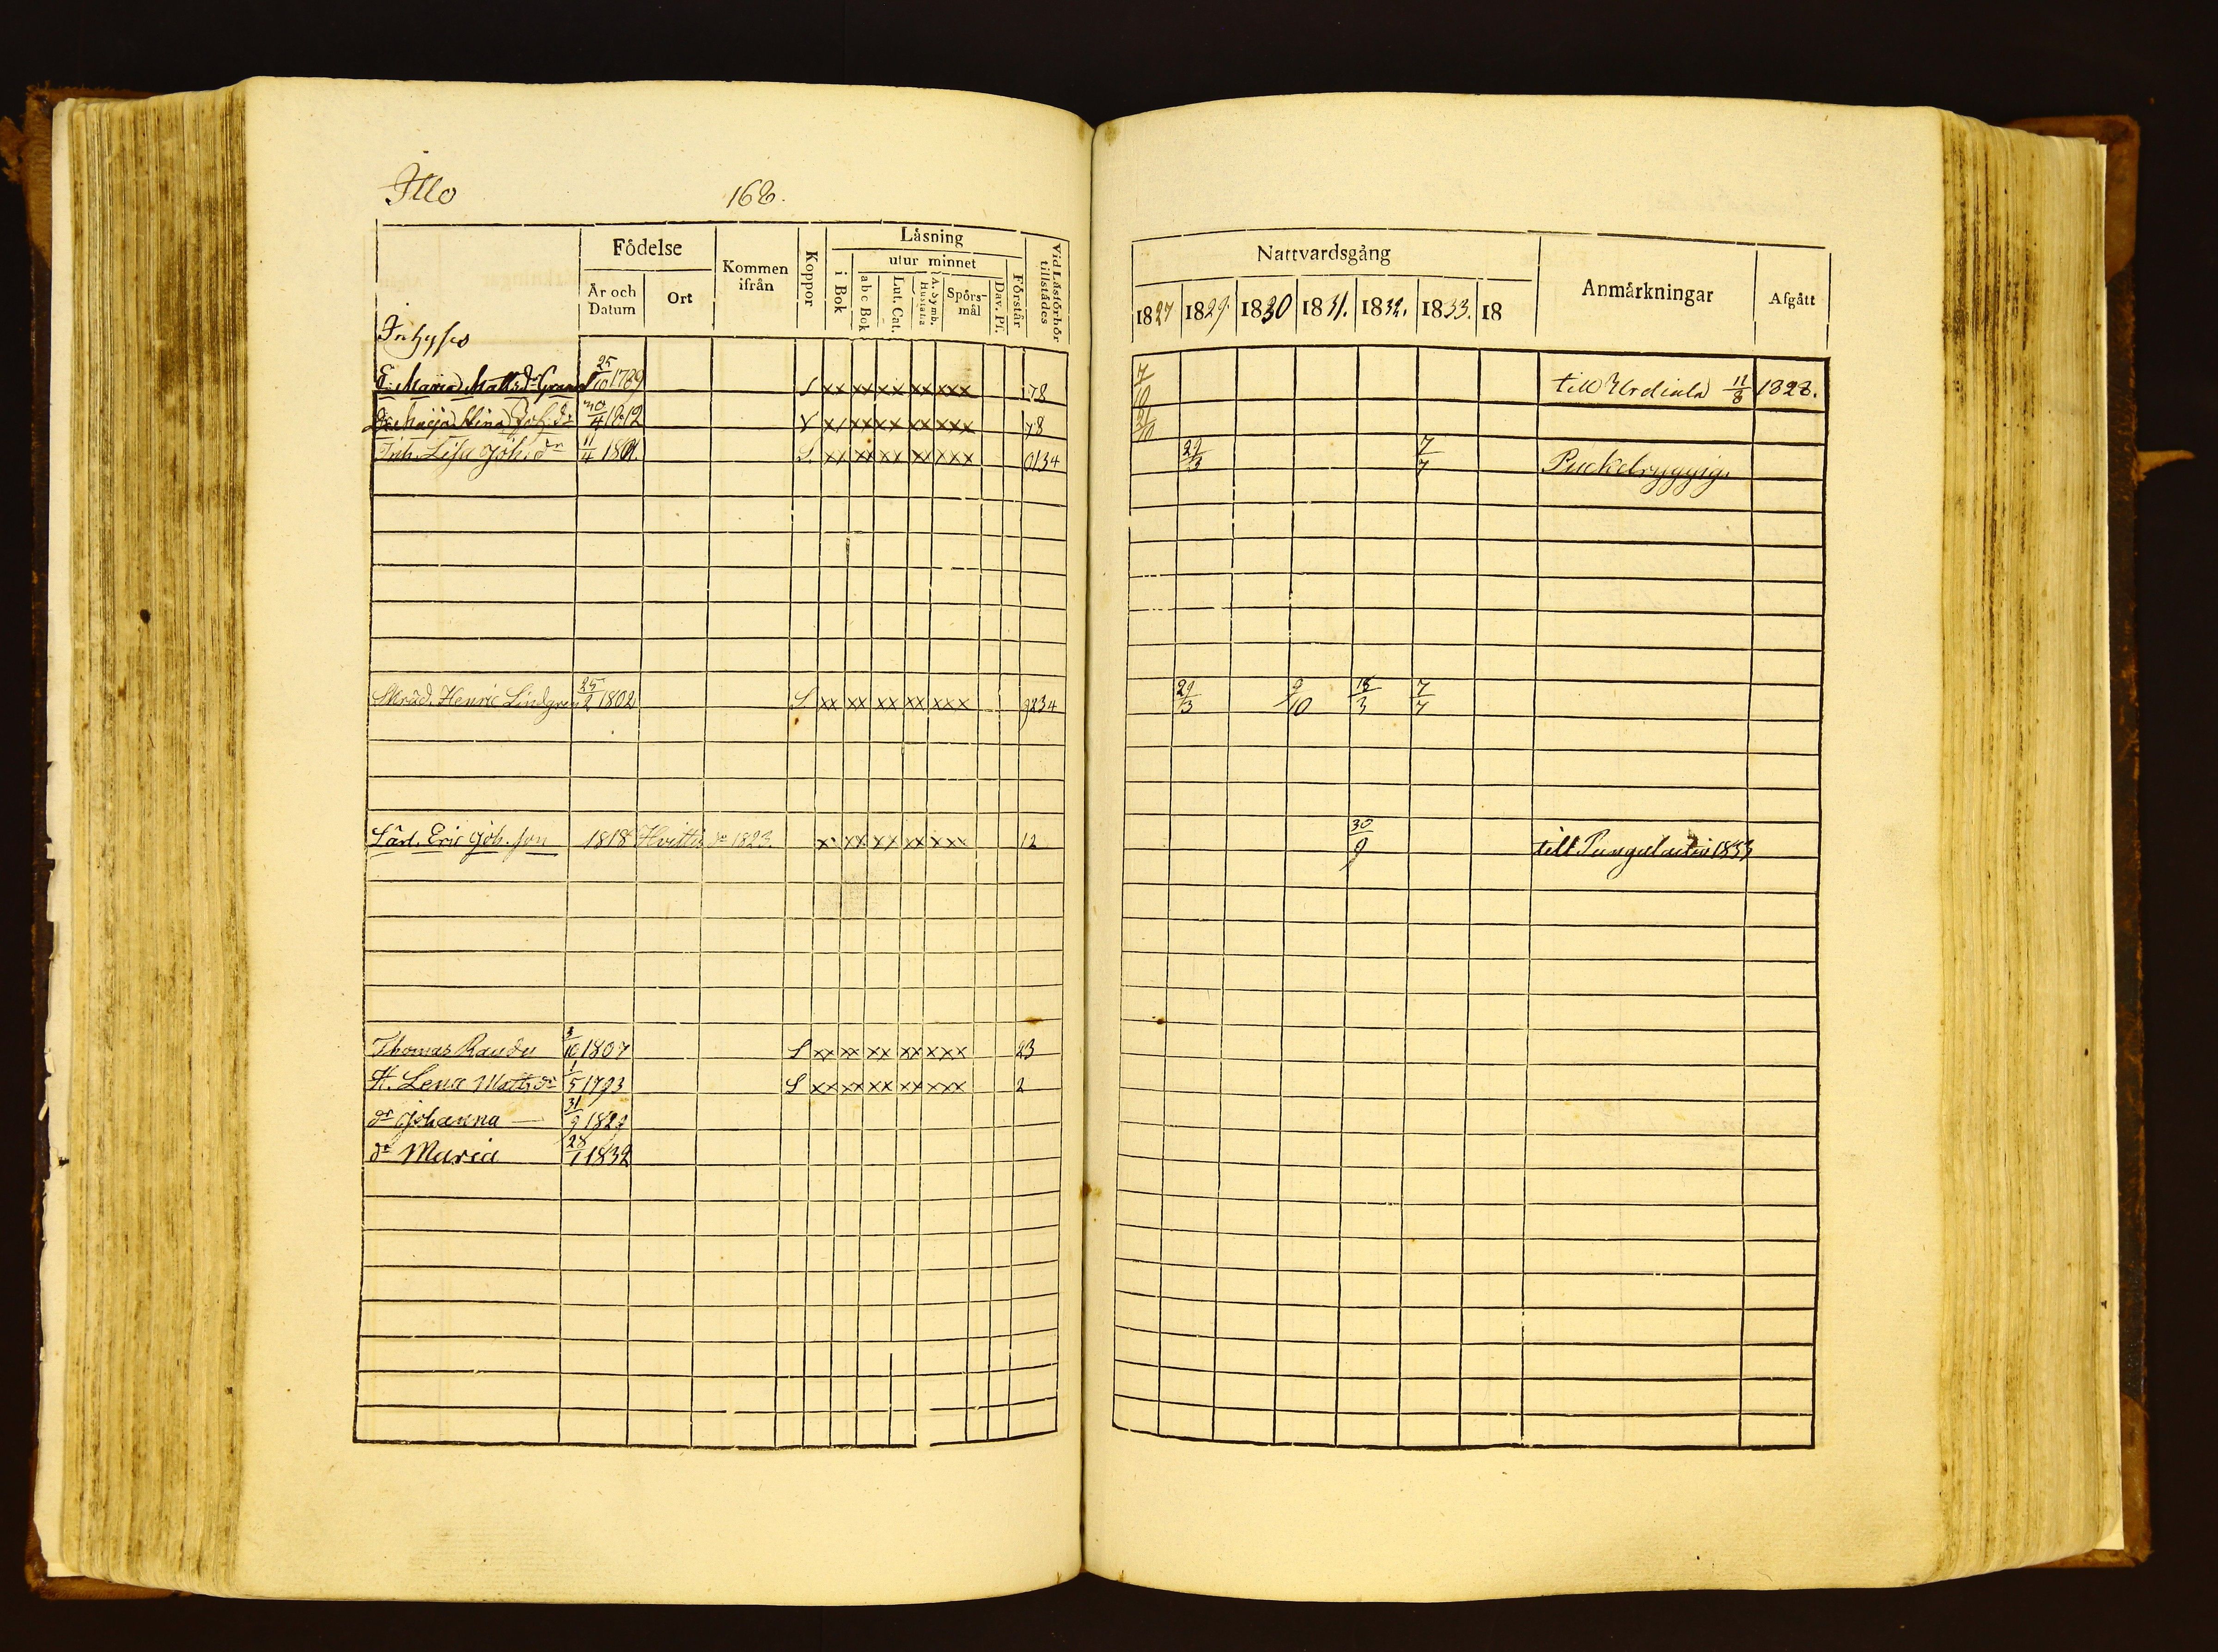 Illo 168.
Födelse Kommen ifrån Koppor Läsning Vid Läsförhör tillstädes
År och Datum Ort i Bok utur minnet Förstår
abc Bok Lut. Cat. A. Symb. Hustafla Spörsmål Dav. Ps.
Nattvardsgång Anmärkningar Afgått
1827 1829. 1830 1831. 1832. 1833. 18
Inhyses
E. Maria Mattsdr 25/10 1789 S xx xx xx xx xxx 78 7/10 till Urdiala 11/8 1828.
dr Maija Stina Joh.dr 30/4 1812 V x/ xx xx xx xxx 78 21/10
Inh. Lisa Joh.dr 11/4 1801. S. x/ xx xx xx xxx 0134 29/3 7/7 Puckelryggig.
Skräd. Henric Lindgren 25/2 1802 S xx xx xx xx xxx 9234 29/3 9/10 18/3 7/7
Lärl. Eric Joh.son 1818 Hvittis dr 1823. x xx xx xx xxx 12 30/9 till 1833
Thomas Raudu 3/10 1807 S xx xx xx xx xxx 23
H. Lena Mattsdr 1/5 1793 S xx xx xx xx xxx 2
dr Johanna — 31/9 1829
dr Maria 28/1 1832